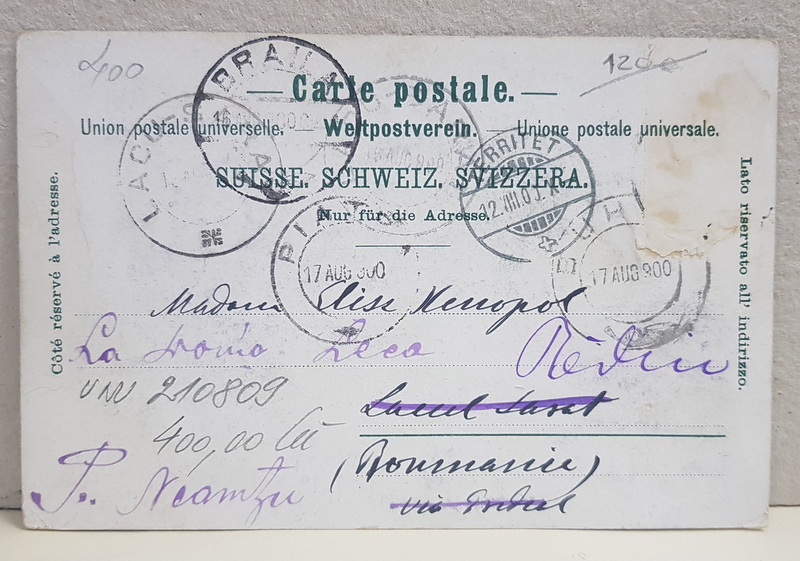 400
1200
Carte postale.
Union postale universelle. — Weltpostverein. — Unione postale universale.
SUISSE. SCHWEIZ. SVIZZERA.
Nur für die Adresse.
Côté réservé à l'adresse.
Lato riservato all' indirizzo.
BRAILA
TERRITET
12.VIII.00
AUG 900
17 AUG 900
17 AUG 900
Madame Elise Xenopol
La Leca
210809
Lacul Sarat
400,00 lei
(Roumanie)
P. Neamtzu
via Predeal